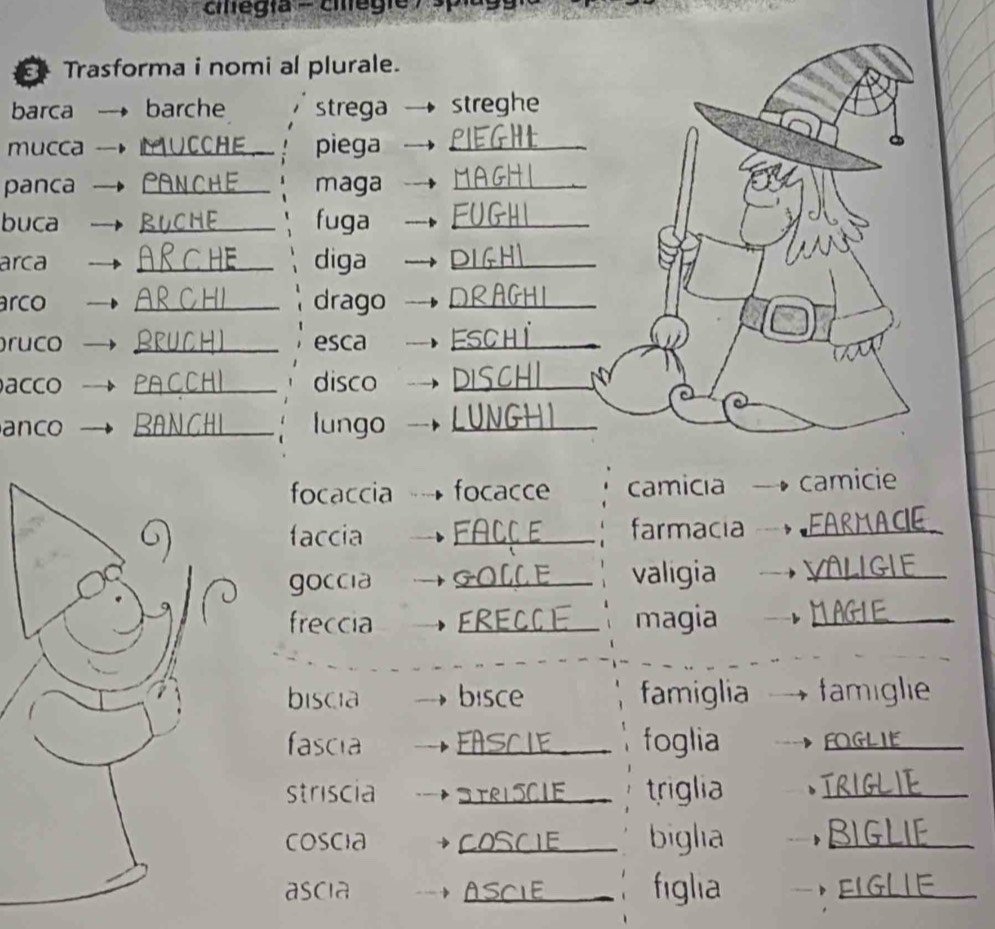 ciliegia - ciliegie /
3 Trasforma i nomi al plurale.
barca → barche
mucca → MUCCHE
panca → PANCHE
buca → BUCHE
arca → ARCHE
arco → ARCHI
bruco → BRUCHI
pacco → PACCHI
banco → BANCHI
strega → streghe
piega → PIEGHE
maga → MAGHI
fuga → FUGHI
diga → DIGHI
drago → DRAGHI
esca → ESCHI
disco → DISCHI
lungo → LUNGHI
focaccia → focacce
faccia → FACCE
goccia → GOCCE
freccia → FRECCE
camicia → camicie
farmacia → FARMACIE
valigia → VALIGIE
magia → MAGIE
biscia → bisce
fascia → FASCIE
striscia → STRISCIE
coscia → COSCIE
ascia → ASCIE
famiglia → famiglie
foglia → FOGLIE
triglia → TRIGLIE
biglia → BIGLIE
figlia → FIGLIE